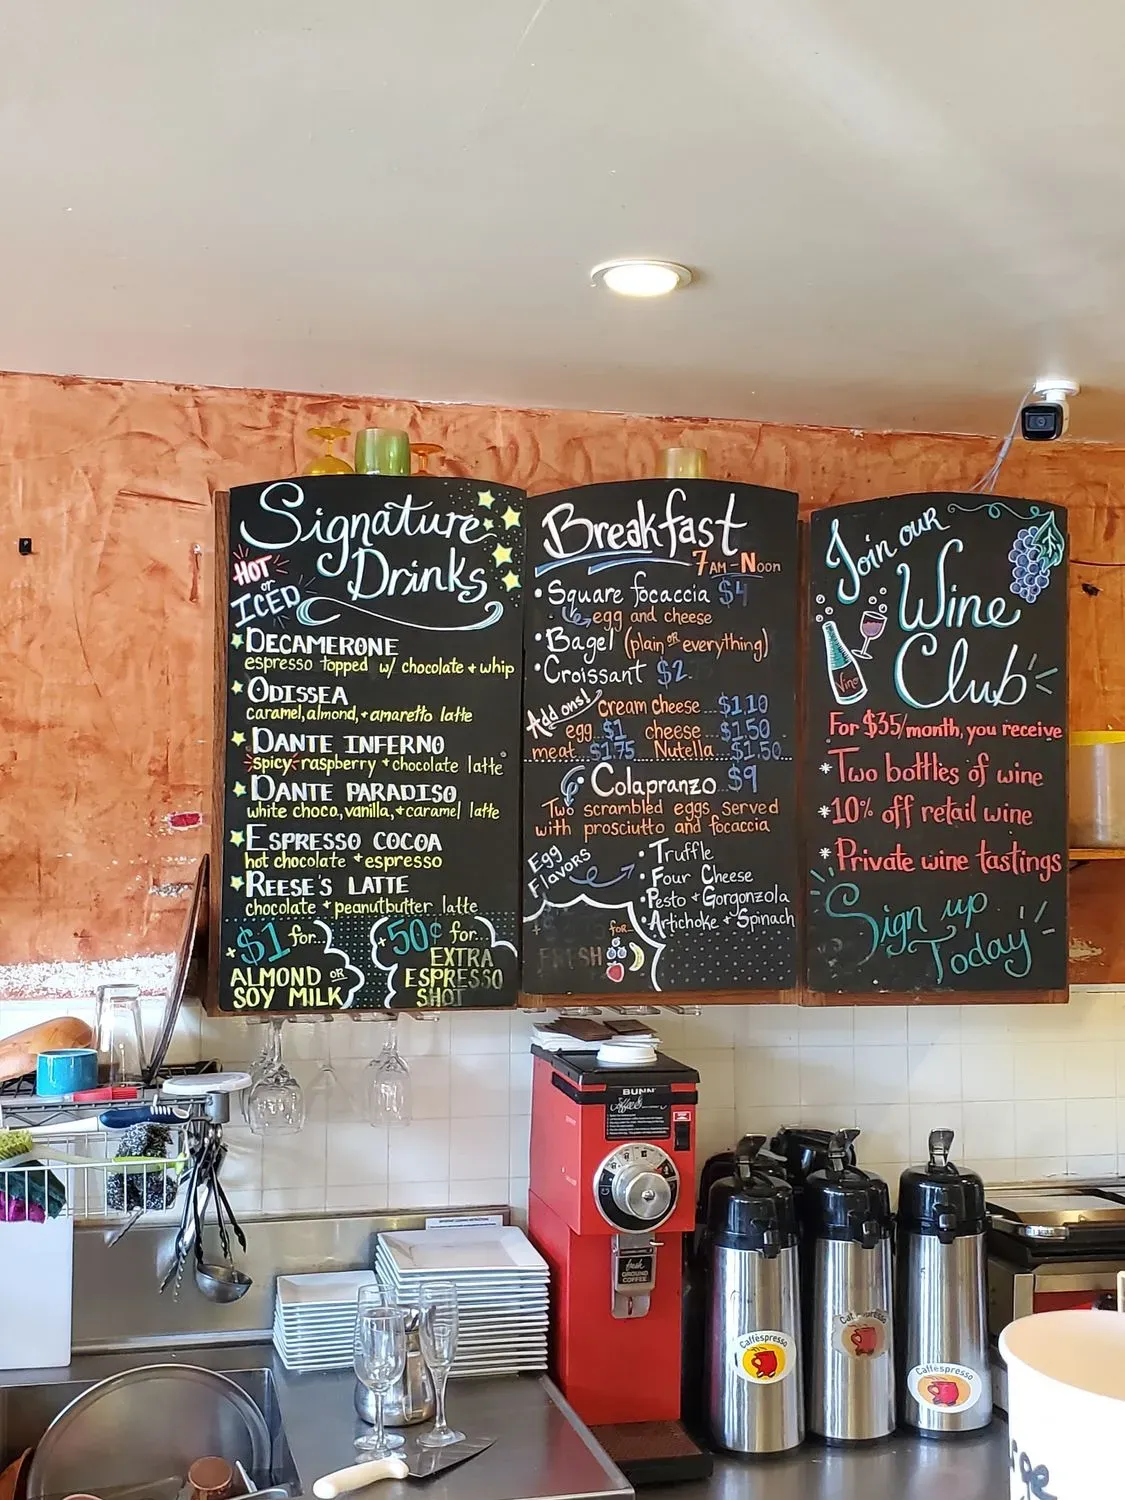 Signature
Drinks
HOT
or
ICED
DECAMERONE
espresso topped w/ chocolate + whip
ODISSEA
caramel, almond, + amaretto latte
DANTE INFERNO
spicy raspberry + chocolate latte
DANTE PARADISO
white choco, vanilla, + caramel latte
ESPRESSO COCOA
hot chocolate + espresso
REESE'S LATTE
chocolate + peanutbutter latte
+$1 for...
ALMOND OR
SOY MILK
+50¢ for...
EXTRA
ESPRESSO
SHOT
Breakfast
7AM-NOON
• Square focaccia $4
egg and cheese
• Bagel (plain OR everything)
• Croissant $2
Add ons!
cream cheese...$1.10
egg..$1 cheese...$1.50
meat..$1.75 Nutella...$1.50
Colapranzo $9
Two scrambled eggs served
with prosciutto and focaccia
Egg
Flavors
• Truffle
• Four Cheese
• Pesto + Gorgonzola
• Artichoke + Spinach
FOR...
FRESH
Join our
Wine
Club
Wine
For $35/month, you receive
* Two bottles of wine
* 10% off retail wine
* Private wine tastings
Sign up
Today
BUNN
Coffee
fresh
GROUND
COFFEE
Cafféspresso
Cafféspresso
Cafféspresso